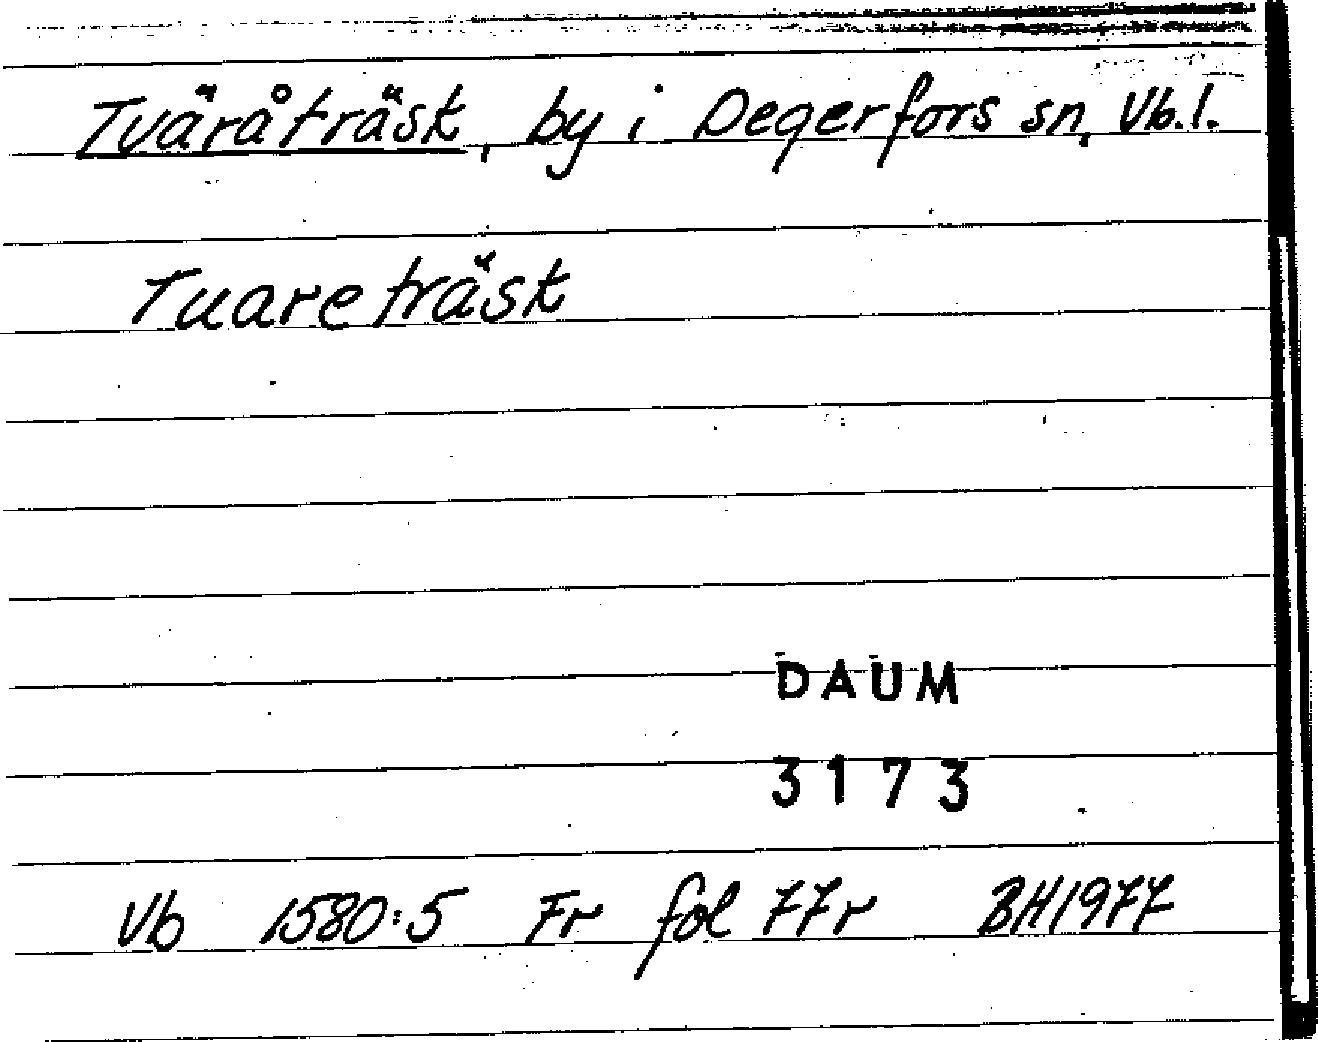 Tväråträsk, by i Degerfors sn, Vb.l.
Tuareträsk
DAUM
3173
Vb 1580:5 Fr fol 77r BH1977